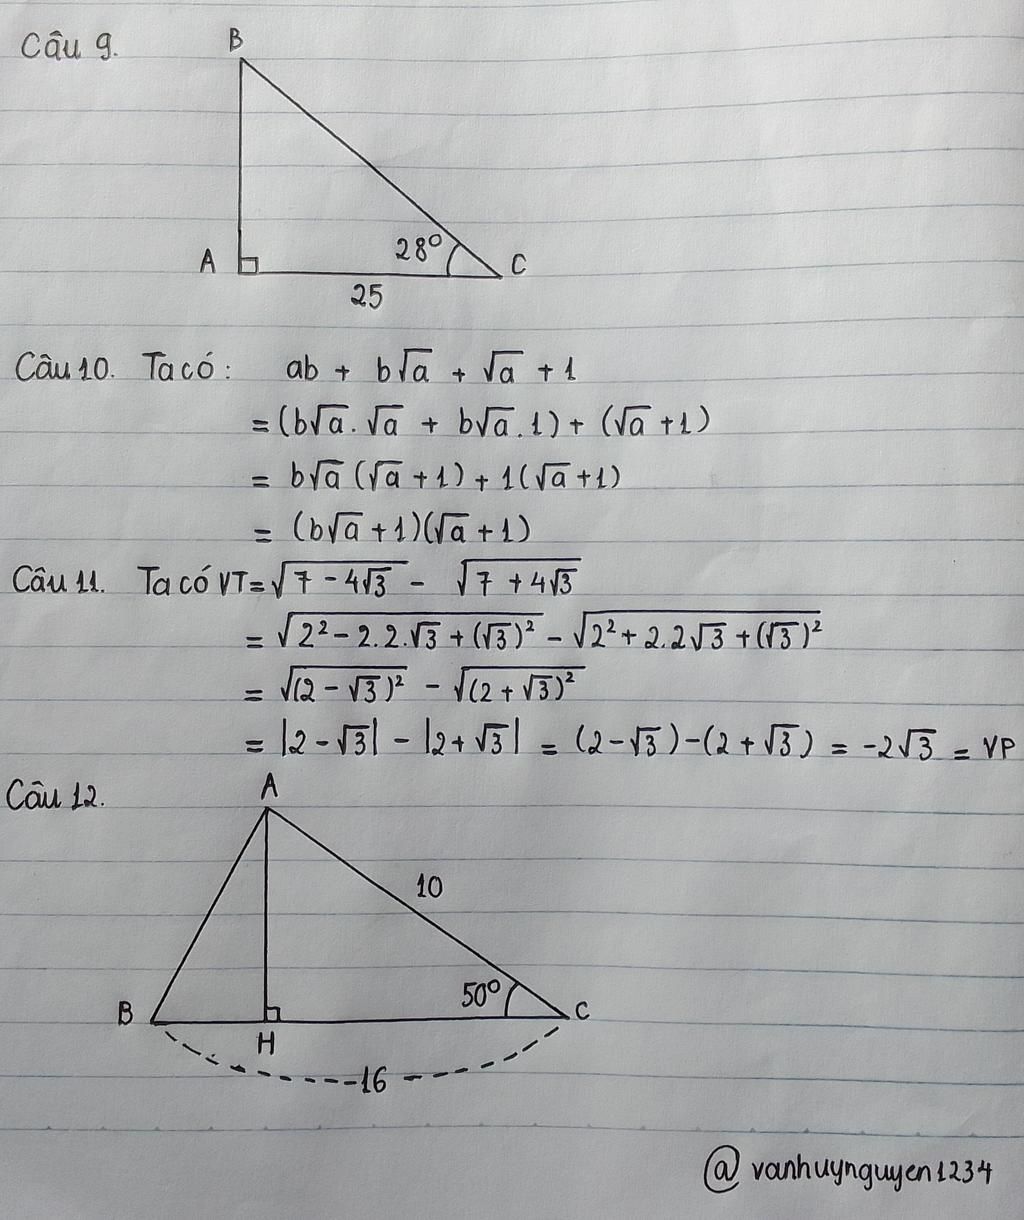 Câu 9.
B
A
28°
C
25
Câu 10. Ta có: ab + b√a + √a + 1
= (b√a . √a + b√a . 1) + (√a + 1)
= b√a (√a + 1) + 1(√a + 1)
= (b√a + 1)(√a + 1)
Câu 11. Ta có VT = √(7 - 4√3) - √(7 + 4√3)
= √(2² - 2.2.√3 + (√3)²) - √(2² + 2.2√3 + (√3)²)
= √((2 - √3)²) - √((2 + √3)²)
= |2 - √3| - |2 + √3| = (2 - √3) - (2 + √3) = -2√3 = VP
Câu 12.
A
10
50°
B
C
H
16
@vanhuynguyen1234